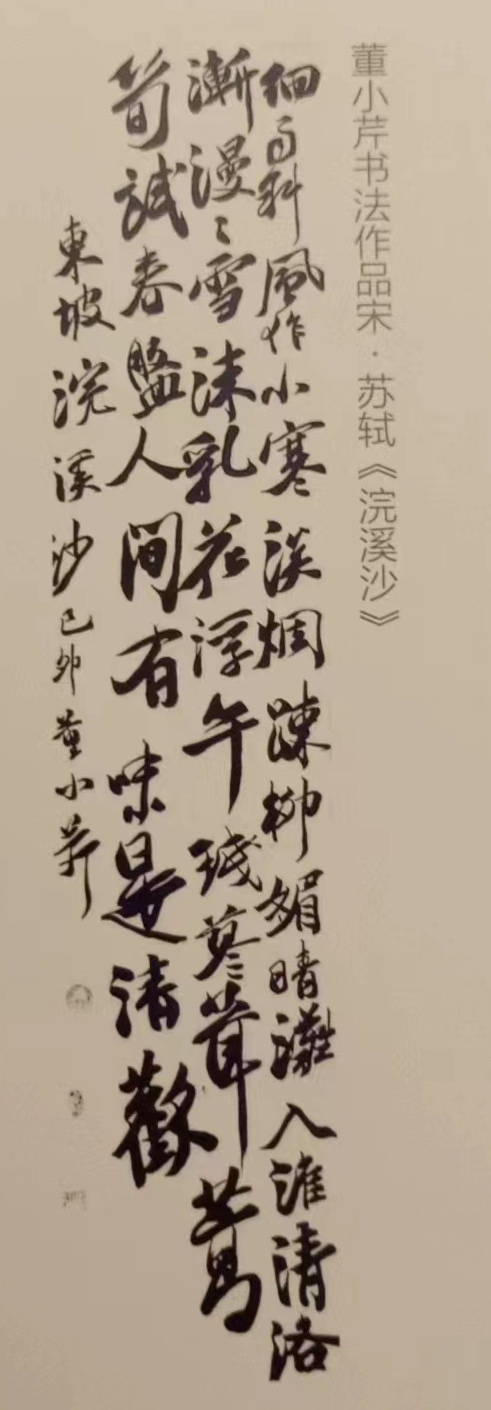 董小芹书法作品宋·苏轼《浣溪沙》
细雨斜风作小寒淡烟疎柳媚晴滩入淮清洛
渐漫々雪沫乳花浮午琖蓼茸蒿
筍試春盤人间有味是清歡
東坡浣溪沙己卯董小芹